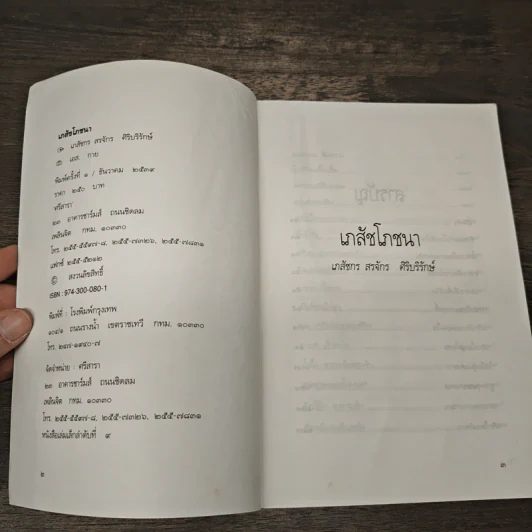 เภสัชโภชนา
เภสัชกร สรจักร ศิริบริรักษ์
เอส. กาย
พิมพ์ครั้งที่ ๑ / ธันวาคม ๒๕๓๙
ราคา ๒๕๐ บาท
ศรีสารา
๒๓ อาคารชาร์มส์ ถนนชิดลม
เพลินจิต กทม. ๑๐๓๓๐
โทร. ๒๕๕-๕๕๙๗-๘, ๒๕๕-๗๓๒๖, ๒๕๕-๗๘๓๑
แฟกซ์ ๒๕๕-๕๒๑๒
© สงวนลิขสิทธิ์
ISBN : 974-300-080-1
พิมพ์ที่ : โรงพิมพ์กรุงเทพ
๑๐๔/๑ ถนนรางน้ำ เขตราชเทวี กทม. ๑๐๓๓๐
โทร. ๒๔๗-๑๙๔๐-๗
จัดจำหน่าย : ศรีสารา
๒๓ อาคารชาร์มส์ ถนนชิดลม
เพลินจิต กทม. ๑๐๓๓๐
โทร. ๒๕๕-๕๕๙๗-๘, ๒๕๕-๗๓๒๖, ๒๕๕-๗๘๓๑
หนังสือเล่มเล็กลำดับที่ ๙
๒
เภสัชโภชนา
เภสัชกร สรจักร ศิริบริรักษ์
๓